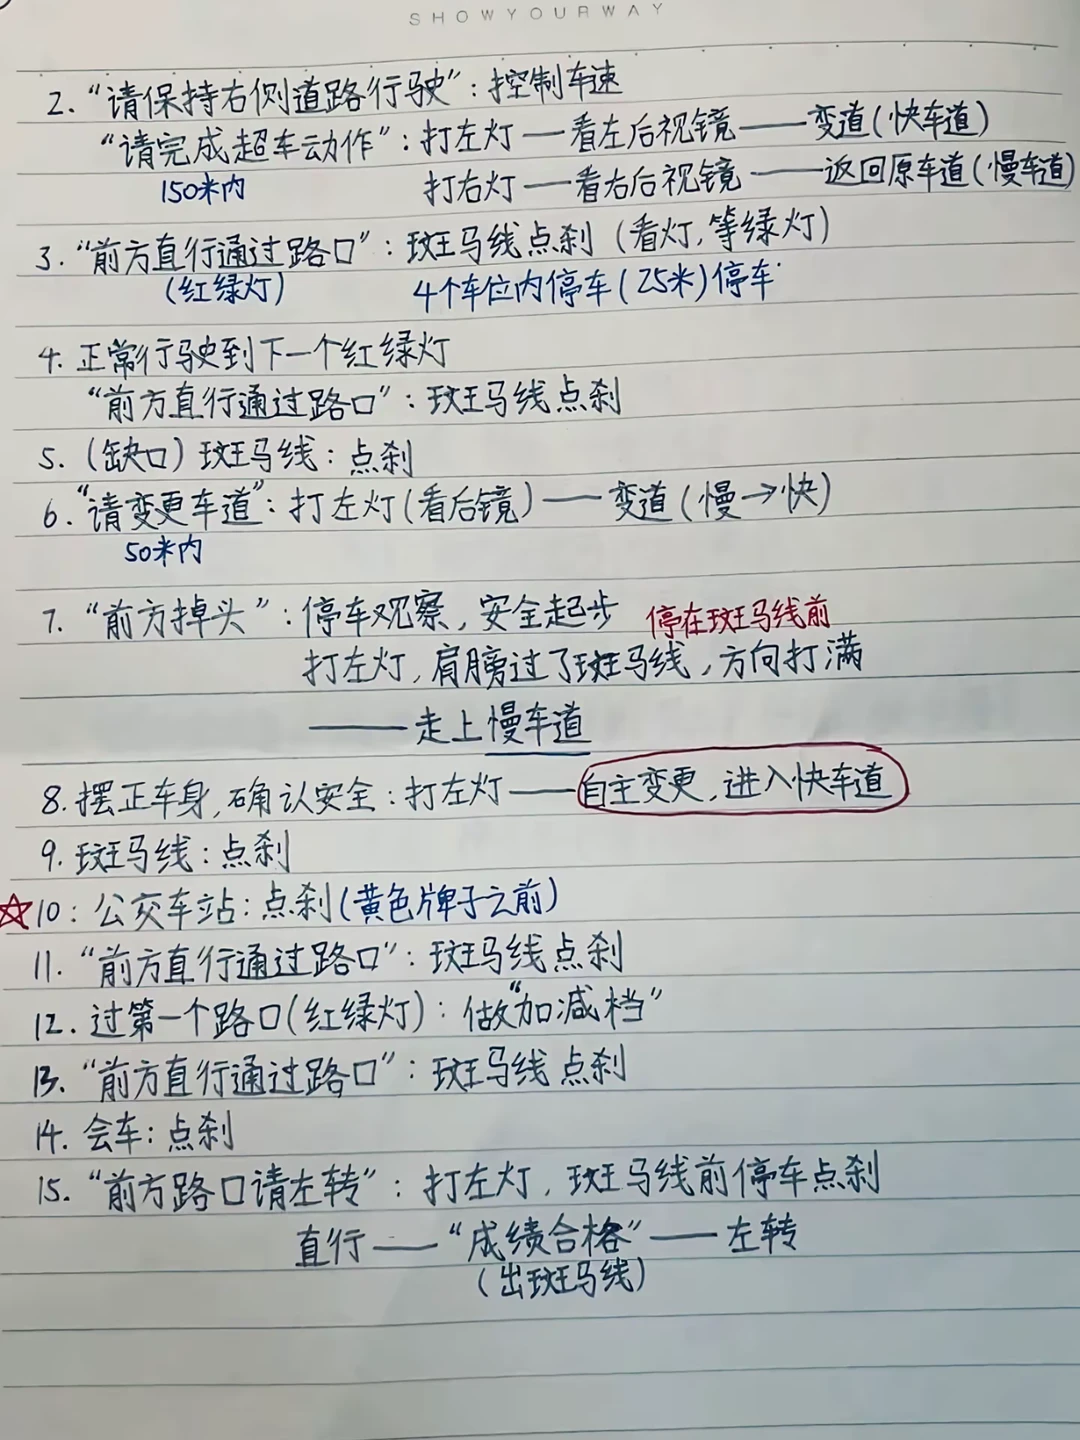 SHOWYOURWAY
2. “请保持右侧道路行驶”：控制车速
“请完成超车动作”：打左灯——看左后视镜——变道(快车道)
150米内 打右灯——看右后视镜——返回原车道(慢车道)
3. “前方直行通过路口”：斑马线点刹（看灯,等绿灯）
(红绿灯) 4个车位内停车(25米)停车
4. 正常行驶到下一个红绿灯
“前方直行通过路口”：斑马线点刹
5. (缺口) 斑马线：点刹
6. “请变更车道”：打左灯(看后镜)——变道(慢→快)
50米内
7. “前方掉头”：停车观察，安全起步 停在斑马线前
打左灯，肩膀过了斑马线，方向打满
——走上慢车道
8. 摆正车身，确认安全：打左灯——自主变更，进入快车道
9. 斑马线：点刹
☆10：公交车站：点刹(黄色牌子之前)
11. “前方直行通过路口”：斑马线点刹
12. 过第一个路口(红绿灯)：做“加减档”
13. “前方直行通过路口”：斑马线点刹
14. 会车：点刹
15. “前方路口请左转”：打左灯，斑马线前停车点刹
直行——“成绩合格”——左转
(出斑马线)